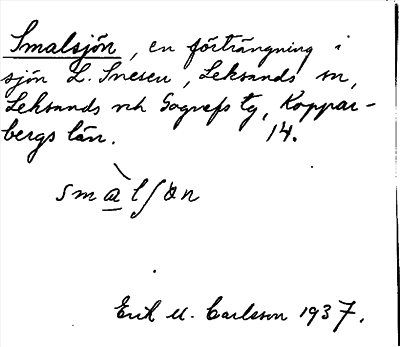 Smalsjön, en förträngning i
sjön L. Snesen, Leksands sn,
Leksands och Gagnefs tg, Koppar-
bergs län. 14.
smalʃön
Erik M. Carlsson 1937.